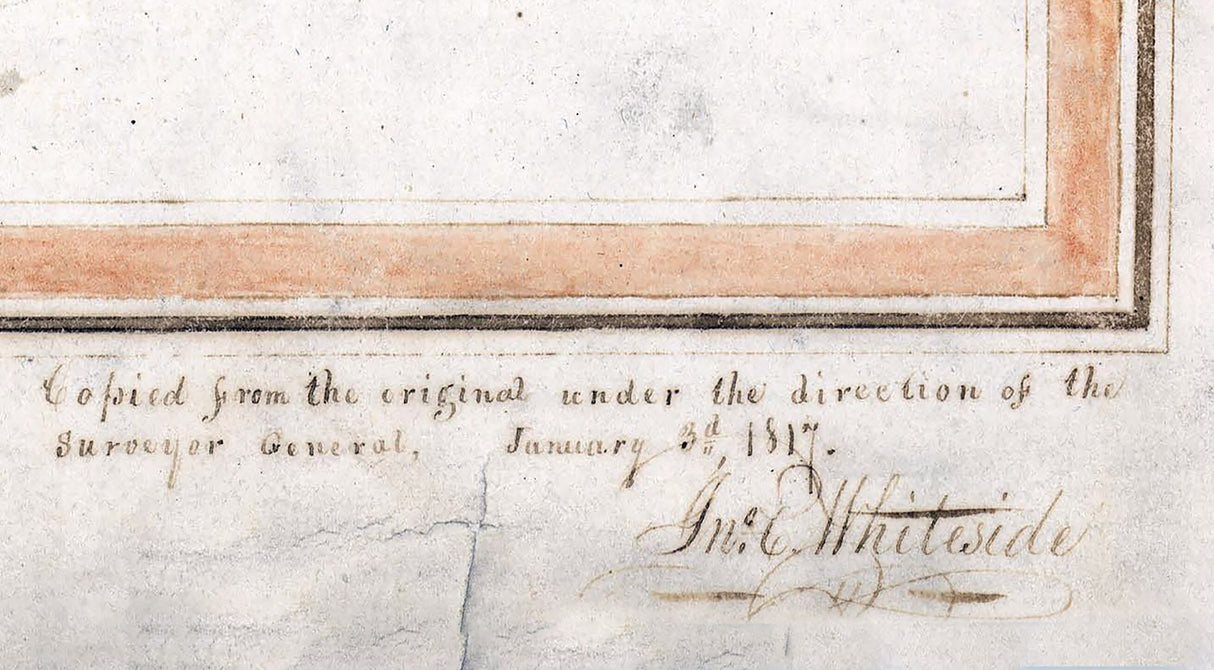 Copied from the original under the direction of the
Surveyor General, January 3d, 1817.
Jno. E. Whiteside